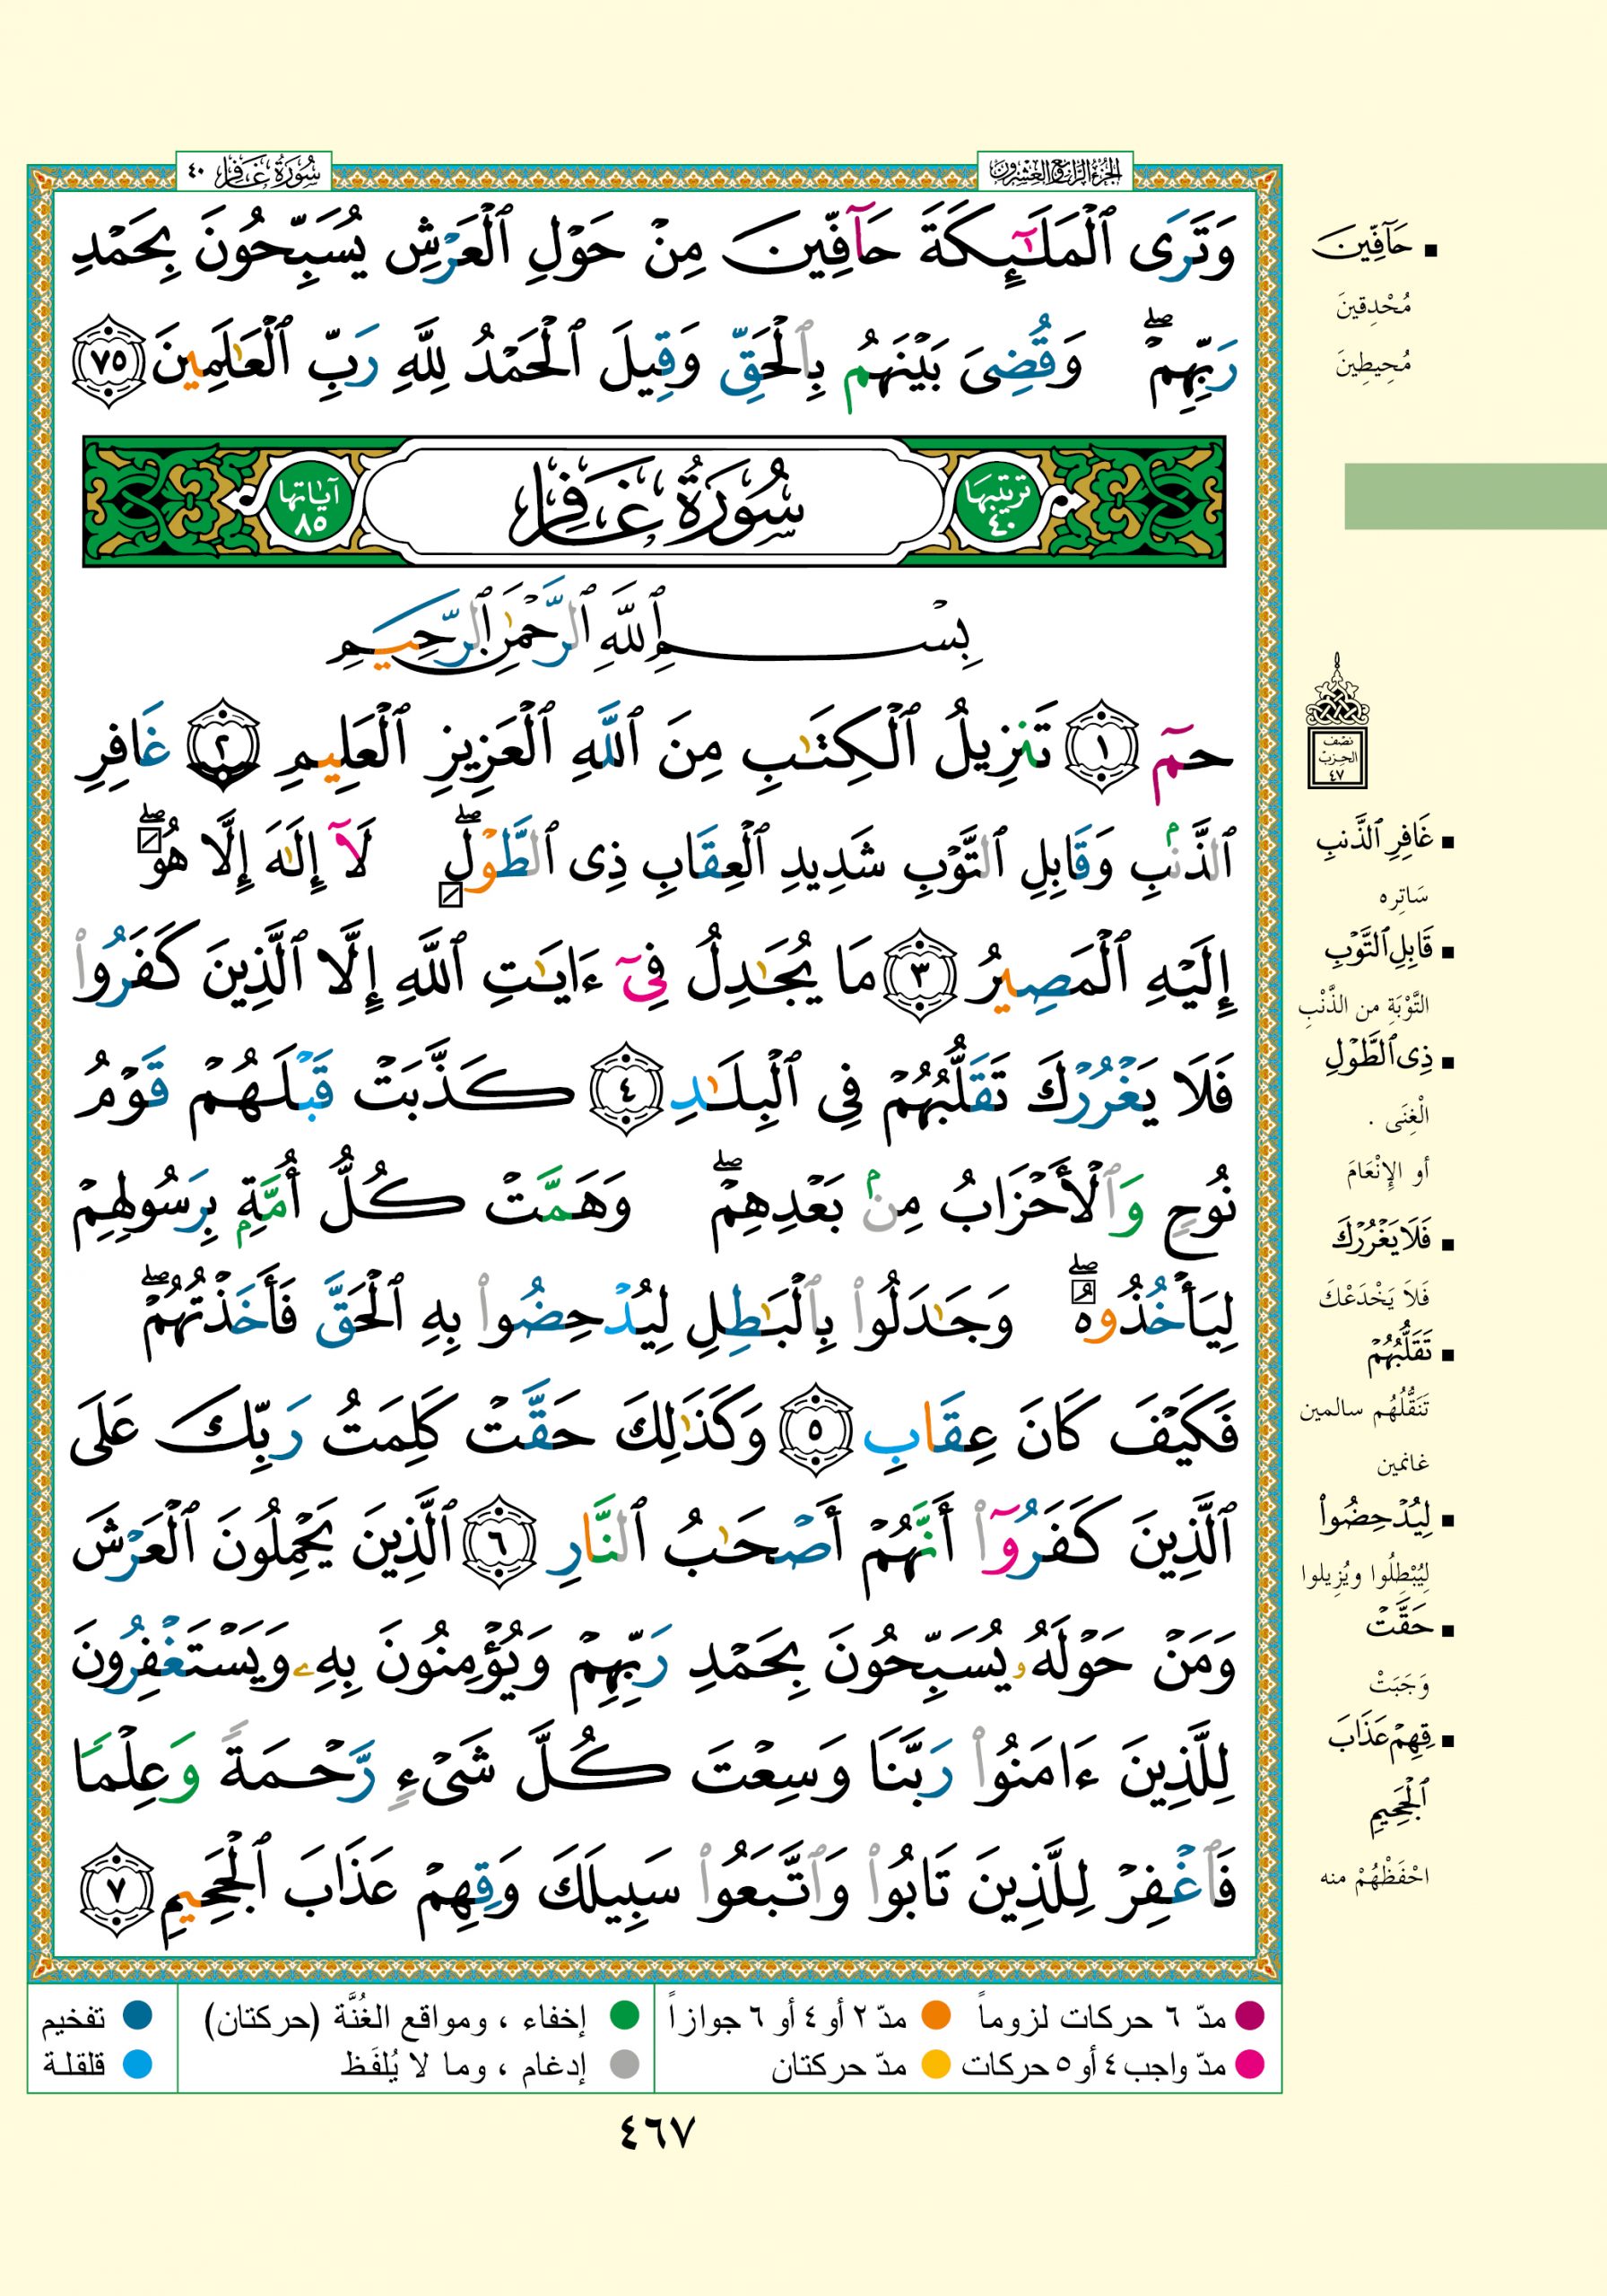 الجزء الرابع والعشرون
سورة غافر ٤٠
وَتَرَى ٱلْمَلَـٰٓئِكَةَ حَآفِّينَ مِنْ حَوْلِ ٱلْعَرْشِ يُسَبِّحُونَ بِحَمْدِ
رَبِّهِمْ ۖ وَقُضِىَ بَيْنَهُم بِٱلْحَقِّ وَقِيلَ ٱلْحَمْدُ لِلَّهِ رَبِّ ٱلْعَـٰلَمِينَ ٧٥
تَرتيبها ٤٠
سُورَةُ غَافِر
آيَاتها ٨٥
بِسْمِ ٱللَّهِ ٱلرَّحْمَـٰنِ ٱلرَّحِيمِ
حمٓ ١ تَنزِيلُ ٱلْكِتَـٰبِ مِنَ ٱللَّهِ ٱلْعَزِيزِ ٱلْعَلِيمِ ٢ غَافِرِ
ٱلذَّنۢبِ وَقَابِلِ ٱلتَّوْبِ شَدِيدِ ٱلْعِقَابِ ذِى ٱلطَّوْلِ ۖ لَآ إِلَـٰهَ إِلَّا هُوَ ۖ
إِلَيْهِ ٱلْمَصِيرُ ٣ مَا يُجَـٰدِلُ فِىٓ ءَايَـٰتِ ٱللَّهِ إِلَّا ٱلَّذِينَ كَفَرُوا۟
فَلَا يَغْرُرْكَ تَقَلُّبُهُمْ فِى ٱلْبِلَـٰدِ ٤ كَذَّبَتْ قَبْلَهُمْ قَوْمُ
نُوحٍ وَٱلْأَحْزَابُ مِنۢ بَعْدِهِمْ ۖ وَهَمَّتْ كُلُّ أُمَّةٍۭ بِرَسُولِهِمْ
لِيَأْخُذُوهُ ۖ وَجَـٰدَلُوا۟ بِٱلْبَـٰطِلِ لِيُدْحِضُوا۟ بِهِ ٱلْحَقَّ فَأَخَذْتُهُمْ ۖ
فَكَيْفَ كَانَ عِقَابِ ٥ وَكَذَٰلِكَ حَقَّتْ كَلِمَتُ رَبِّكَ عَلَى
ٱلَّذِينَ كَفَرُوٓا۟ أَنَّهُمْ أَصْحَـٰبُ ٱلنَّارِ ٦ ٱلَّذِينَ يَحْمِلُونَ ٱلْعَرْشَ
وَمَنْ حَوْلَهُۥ يُسَبِّحُونَ بِحَمْدِ رَبِّهِمْ وَيُؤْمِنُونَ بِهِۦ وَيَسْتَغْفِرُونَ
لِلَّذِينَ ءَامَنُوا۟ رَبَّنَا وَسِعْتَ كُلَّ شَىْءٍ رَّحْمَةً وَعِلْمًا
فَٱغْفِرْ لِلَّذِينَ تَابُوا۟ وَٱتَّبَعُوا۟ سَبِيلَكَ وَقِهِمْ عَذَابَ ٱلْجَحِيمِ ٧
حَآفِّينَ
مُحْدِقِينَ
مُحِيطِينَ
نصف
الحزب
٤٧
غَافِرِ ٱلذَّنبِ
سَاتِره
قَابِلِ ٱلتَّوْبِ
التَّوْبَةِ من الذَّنْبِ
ذِى ٱلطَّوْلِ
الْغِنَى .
أو الإنْعَامَ
فَلَا يَغْرُرْكَ
فَلاَ يَخْدَعْكَ
تَقَلُّبُهُمْ
تَنَقُّلُهُم سالمين
غانمين
لِيُدْحِضُوا۟
لِيُبْطِلُوا ويُزِيلوا
حَقَّتْ
وَجَبَتْ
قِهِمْ عَذَابَ
ٱلْجَحِيمِ
احْفَظْهُمْ منه
مدّ ٦ حركات لزوماً
مدّ ٢ أو ٤ أو ٦ جوازاً
إخفاء ، ومواقع الغُنَّة (حركتان)
تفخيم
مدّ واجب ٤ أو ٥ حركات
مدّ حركتان
إدغام ، وما لا يُلفَظ
قلقلة
٤٦٧